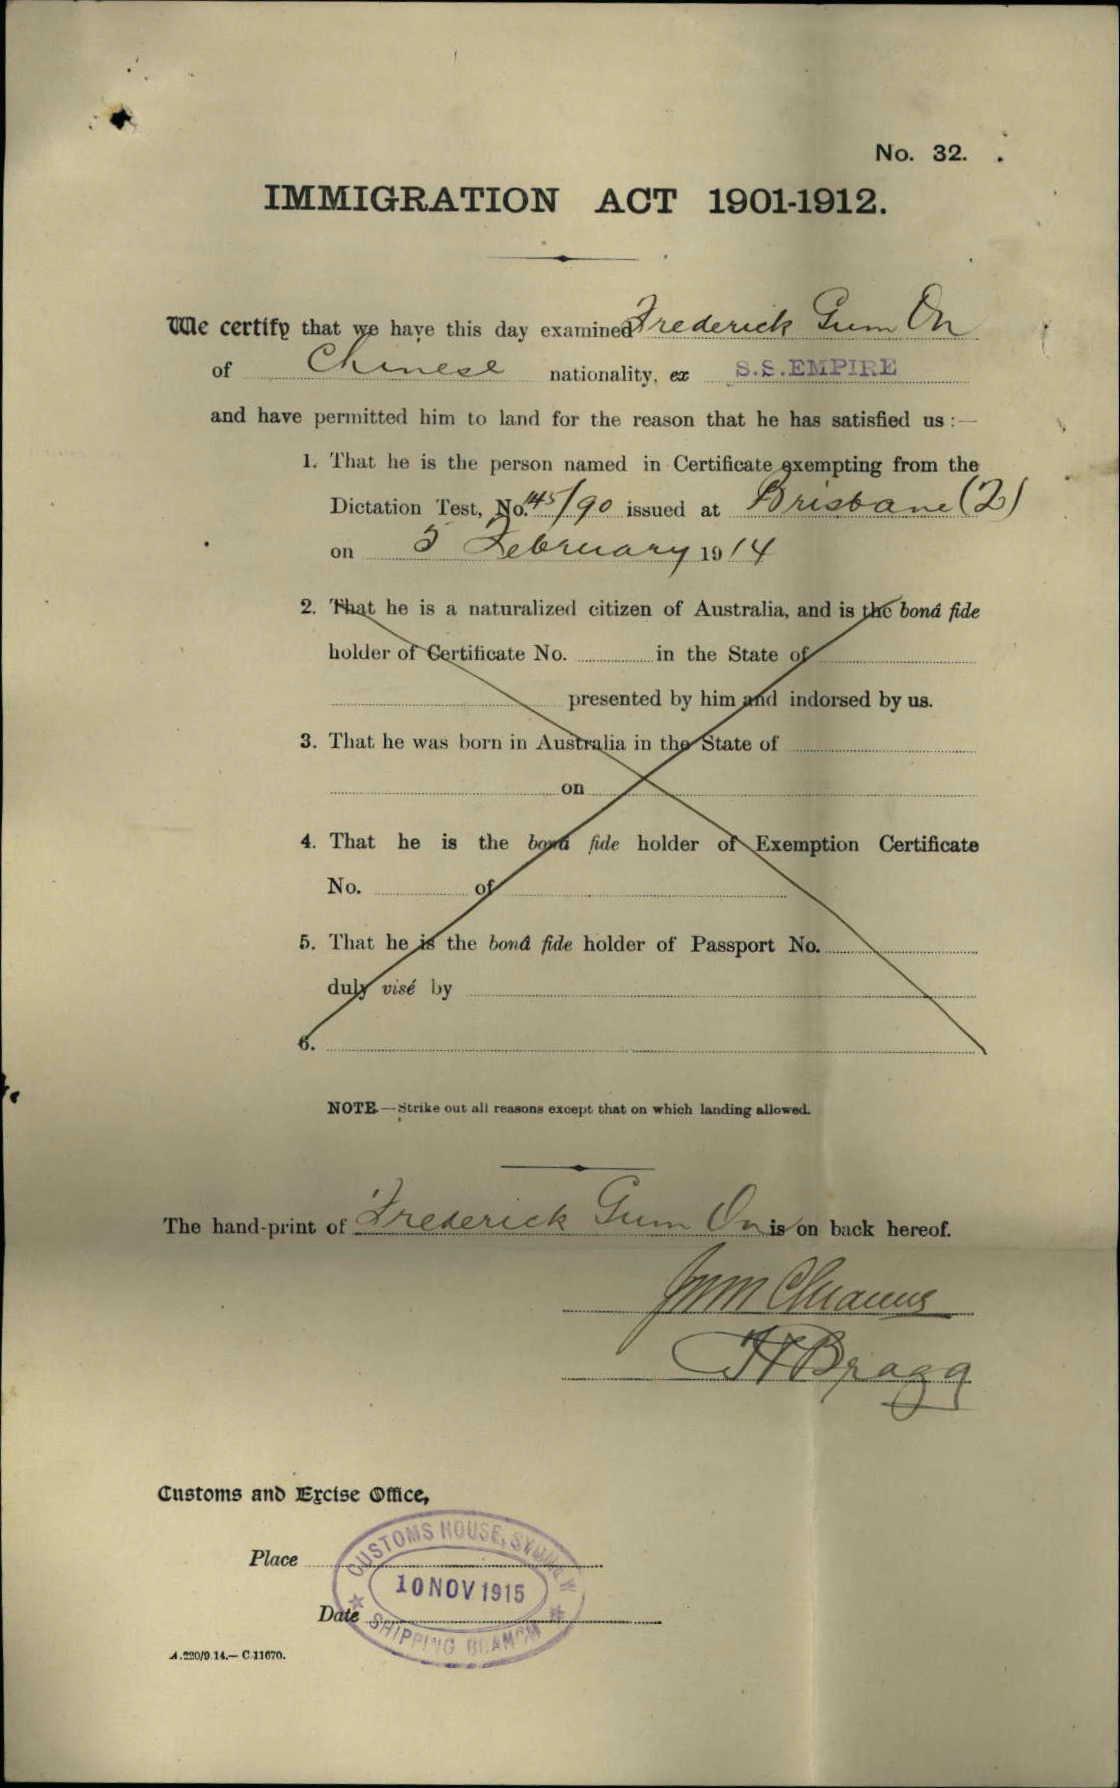 No. 32.
IMMIGRATION ACT 1901-1912.
We certify that we have this day examined Frederick Gum On
of Chinese nationality, ex S.S. EMPIRE
and have permitted him to land for the reason that he has satisfied us:—
1. That he is the person named in Certificate exempting from the
Dictation Test, No. 145/90 issued at Brisbane (2)
on 5 February 1914
2. That he is a naturalized citizen of Australia, and is the bonâ fide
holder of Certificate No. in the State of
presented by him and indorsed by us.
3. That he was born in Australia in the State of
on
4. That he is the bonâ fide holder of Exemption Certificate
No. of
5. That he is the bonâ fide holder of Passport No.
duly visé by
6.
NOTE.—Strike out all reasons except that on which landing allowed.
The hand-print of Frederick Gum On is on back hereof.
Bragg
Customs and Excise Office,
CUSTOMS HOUSE, SYDNEY
Place
10 NOV 1915
Date
SHIPPING BRANCH
A.220/9.14.—C.11670.